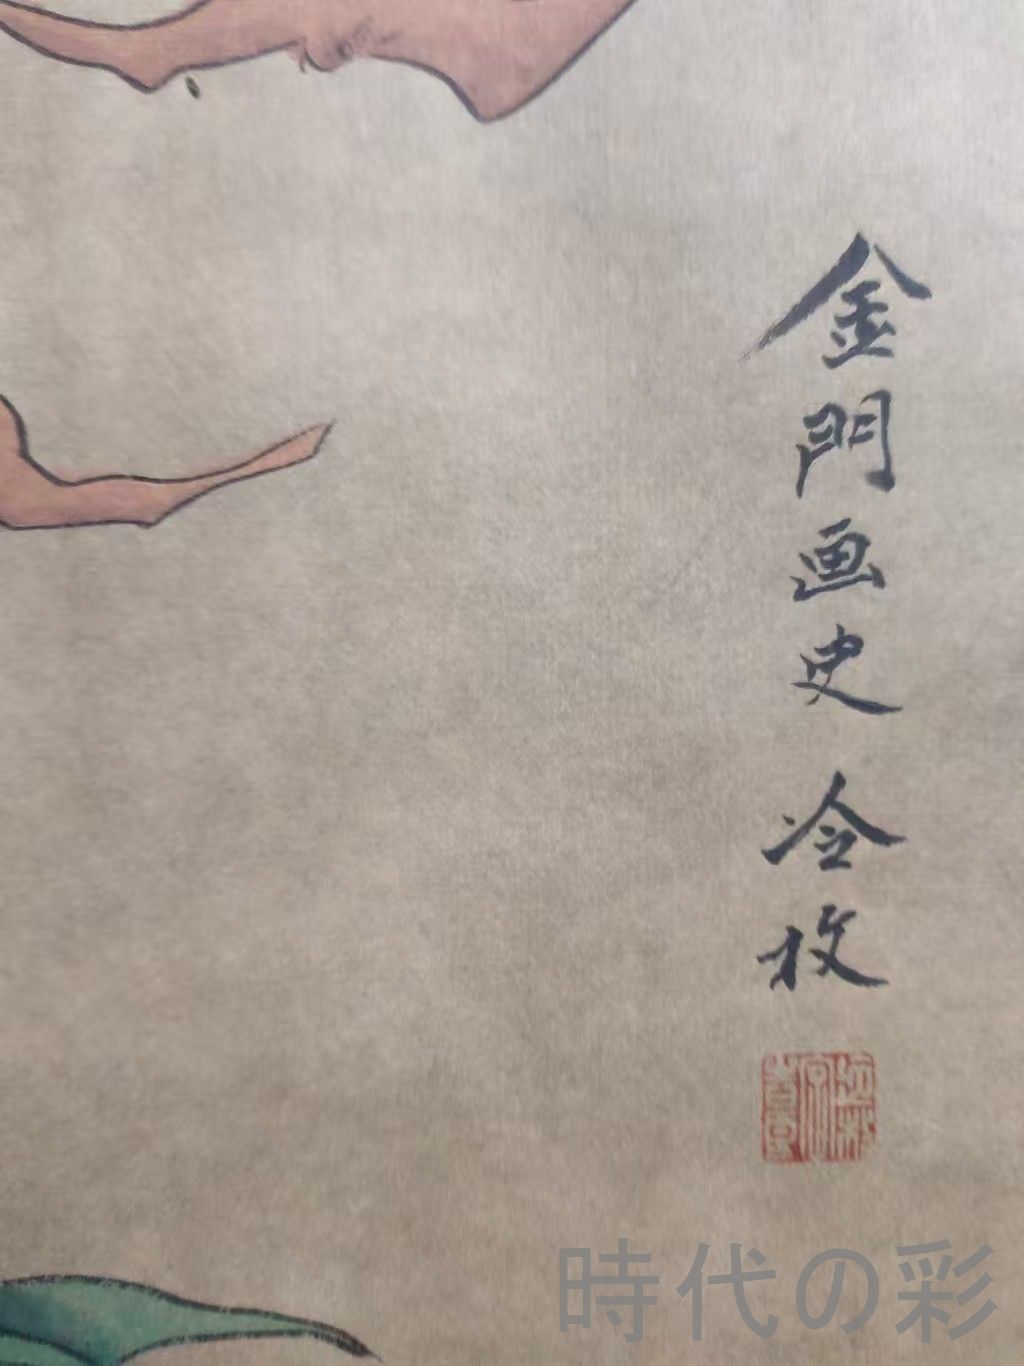 金門画史 冷枚
時代の彩